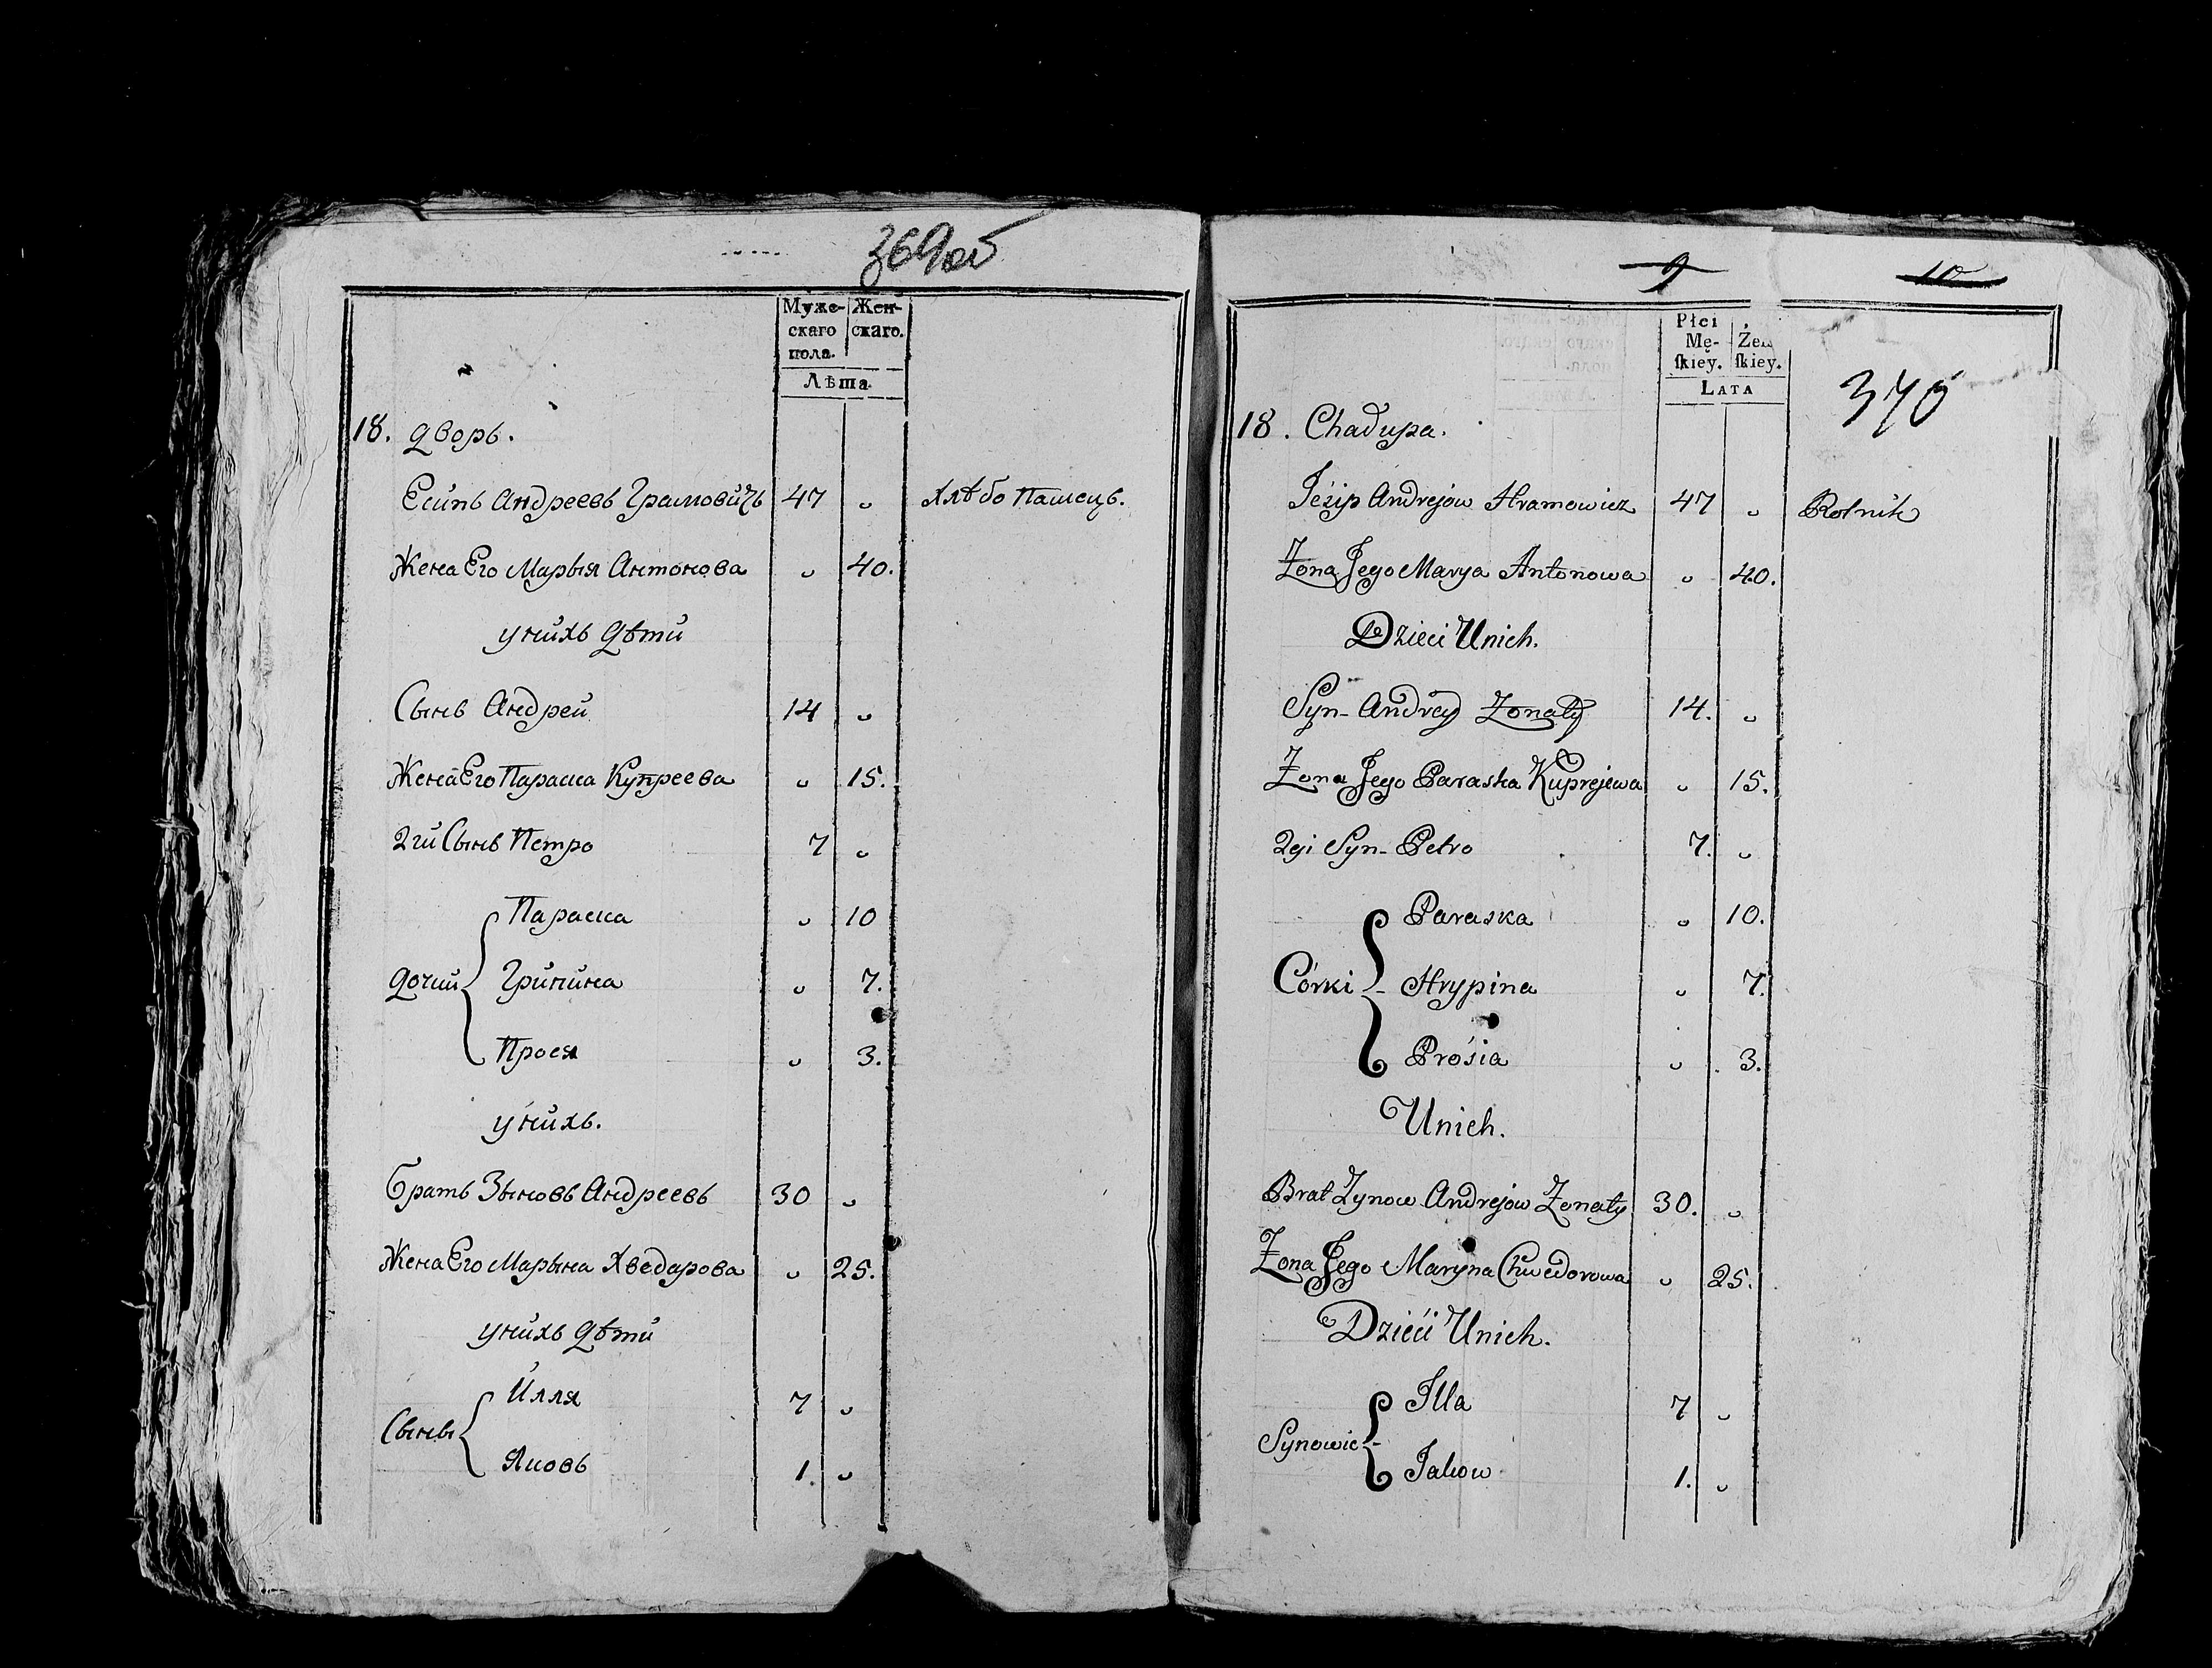 369 об
Муже-
скаго
пола.
Жен-
скаго.
Лѣта.
18. дворъ.
Есипъ Андреевъ Грамовичъ 47 „ Хлѣбо пашецъ.
Жена Его Марыя Антонова „ 40.
у нихъ дѣти
Сынъ Андрей 14 „
Жена Его Параска Купреева „ 15.
2гй Сынъ Петро 7 „
Параска „ 10
Дочки Грипина „ 7.
Прося „ 3.
у нихъ.
братъ Зыновъ Андреевъ 30 „
Жена Его Марына Хведарова „ 25.
у нихъ дѣти
Илля 7 „
Сыны
Яковъ 1. „
9
10
370
Płci
Mę-
ſkiey.
Żeń
ſkiey.
LATA
18. Chadupa.
Jésip Andrejów Hramowicz 47 „ Rolnik
Żona Jego Marya Antonowa „ 40.
Dzieci Unich.
Syn - Andrey Żonaty 14. „
Żona Jego Paraska Kuprejewa „ 15.
2gi Syn - Petro 7. „
Paraska „ 10.
Córki - Hrypina „ 7.
Prósia „ 3.
Unich.
Brat Zynow Andrejów Żonaty 30. „
Żona Jego Maryna Chwedorowa „ 25.
Dzieći Unich.
Illa 7 „
Synowie -
Jakow 1. „